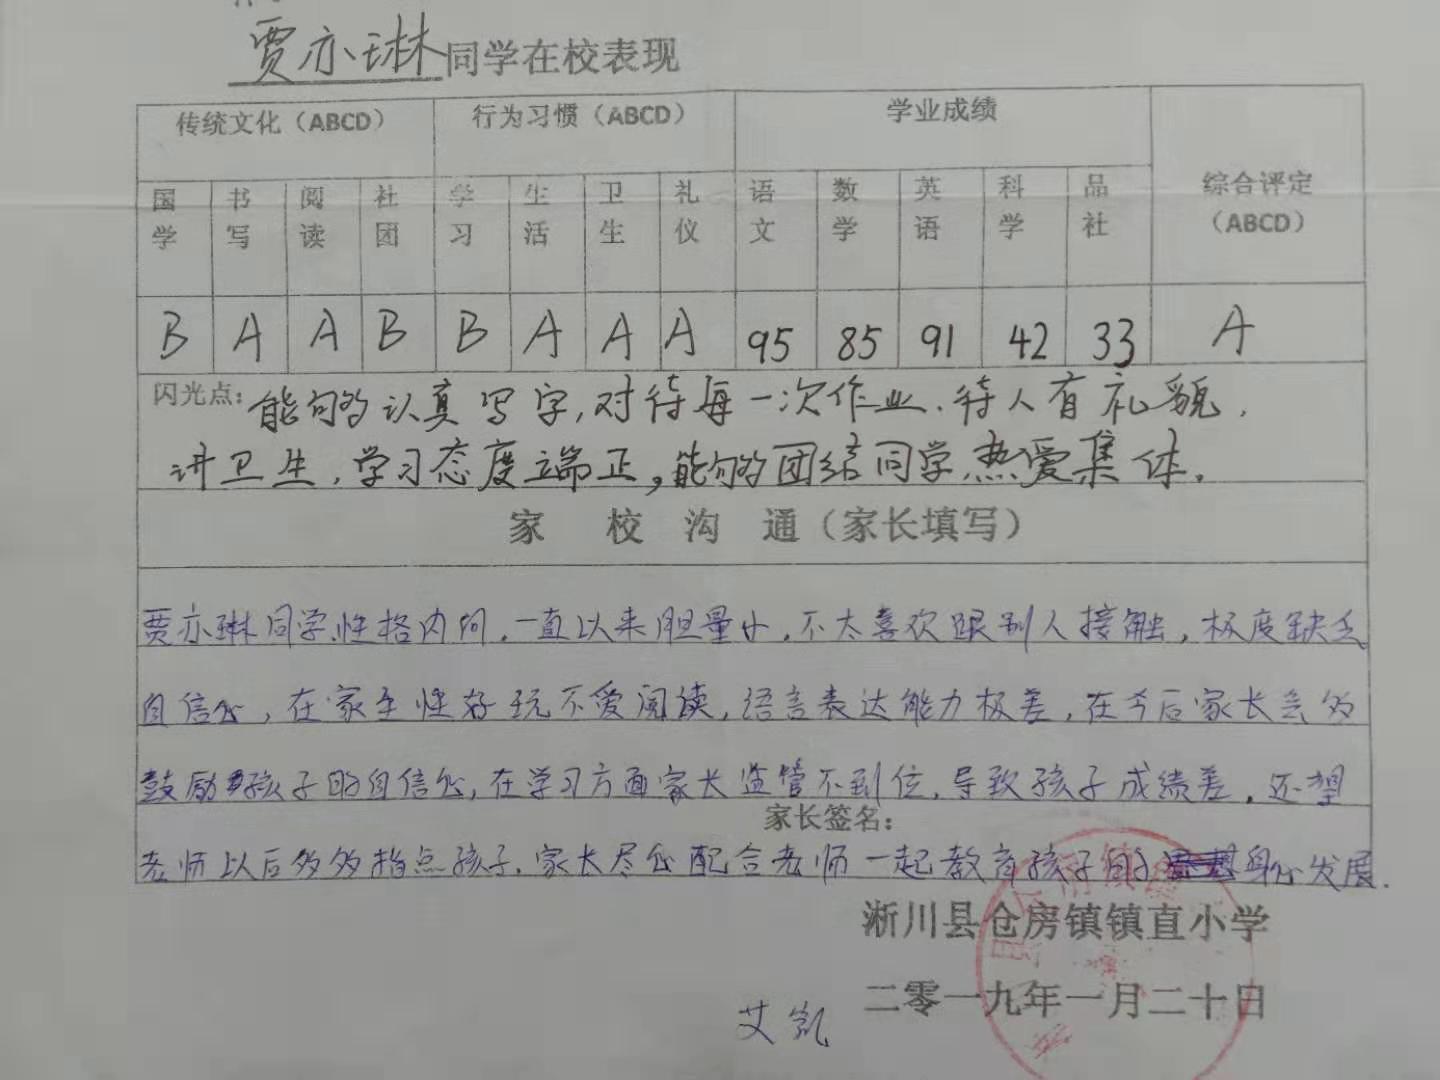 贾亦琳同学在校表现
传统文化（ABCD） 行为习惯（ABCD） 学业成绩 综合评定（ABCD）
国学 书写 阅读 社团 学习 生活 卫生 礼仪 语文 数学 英语 科学 品社
B A A B B A A A 95 85 91 42 33 A
闪光点：能够认真写字，对待每一次作业．待人有礼貌，
讲卫生，学习态度端正，能够团结同学，热爱集体。
家 校 沟 通（家长填写）
贾亦琳同学性格内向，一直以来胆量小，不太喜欢跟别人接触，极度缺乏
自信心，在家生性好玩不爱阅读，语言表达能力极差，在今后家长会多
鼓励孩子的自信心，在学习方面家长监管不到位，导致孩子成绩差，还望
家长签名：
老师以后多多指点孩子，家长尽心配合老师一起教育孩子的身心发展．
淅川县仓房镇镇直小学
二零一九年一月二十日
艾凯